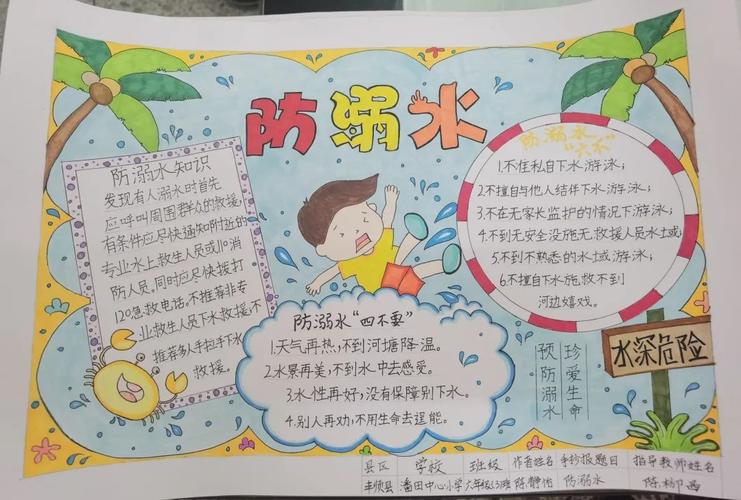 防溺水
防溺水知识
发现有人溺水时首先
应呼叫周围群众的救援,
有条件应尽快通知附近的
专业水上救生人员或110消
防人员,同时应尽快拨打
120急救电话。不推荐非专
业救生人员下水救援,不
推荐多人手拉手下水
救援。
防溺水
"六不"
1.不住私自下水游泳;
2.不擅自与他人结伴下水游泳;
3.不在无家长监护的情况下游泳;
4.不到无安全没施无救援人员水域;
5.不到不熟悉的水域游泳;
6.不擅自下水施救不到
河边嬉戏。
防溺水"四不要"
1.天气再热,不到河塘降温。
2.水景再美,不到水中去感受。
3.水性再好,没有保障别下水。
4.别人再劝,不用生命去逞能。
珍爱生命
预防溺水
水深危险
县区 学校 班级 作者姓名 手抄报题目 指导教师姓名
丰顺县 潘田中心小学 六年级(3)班 陈静怡 防溺水 陈